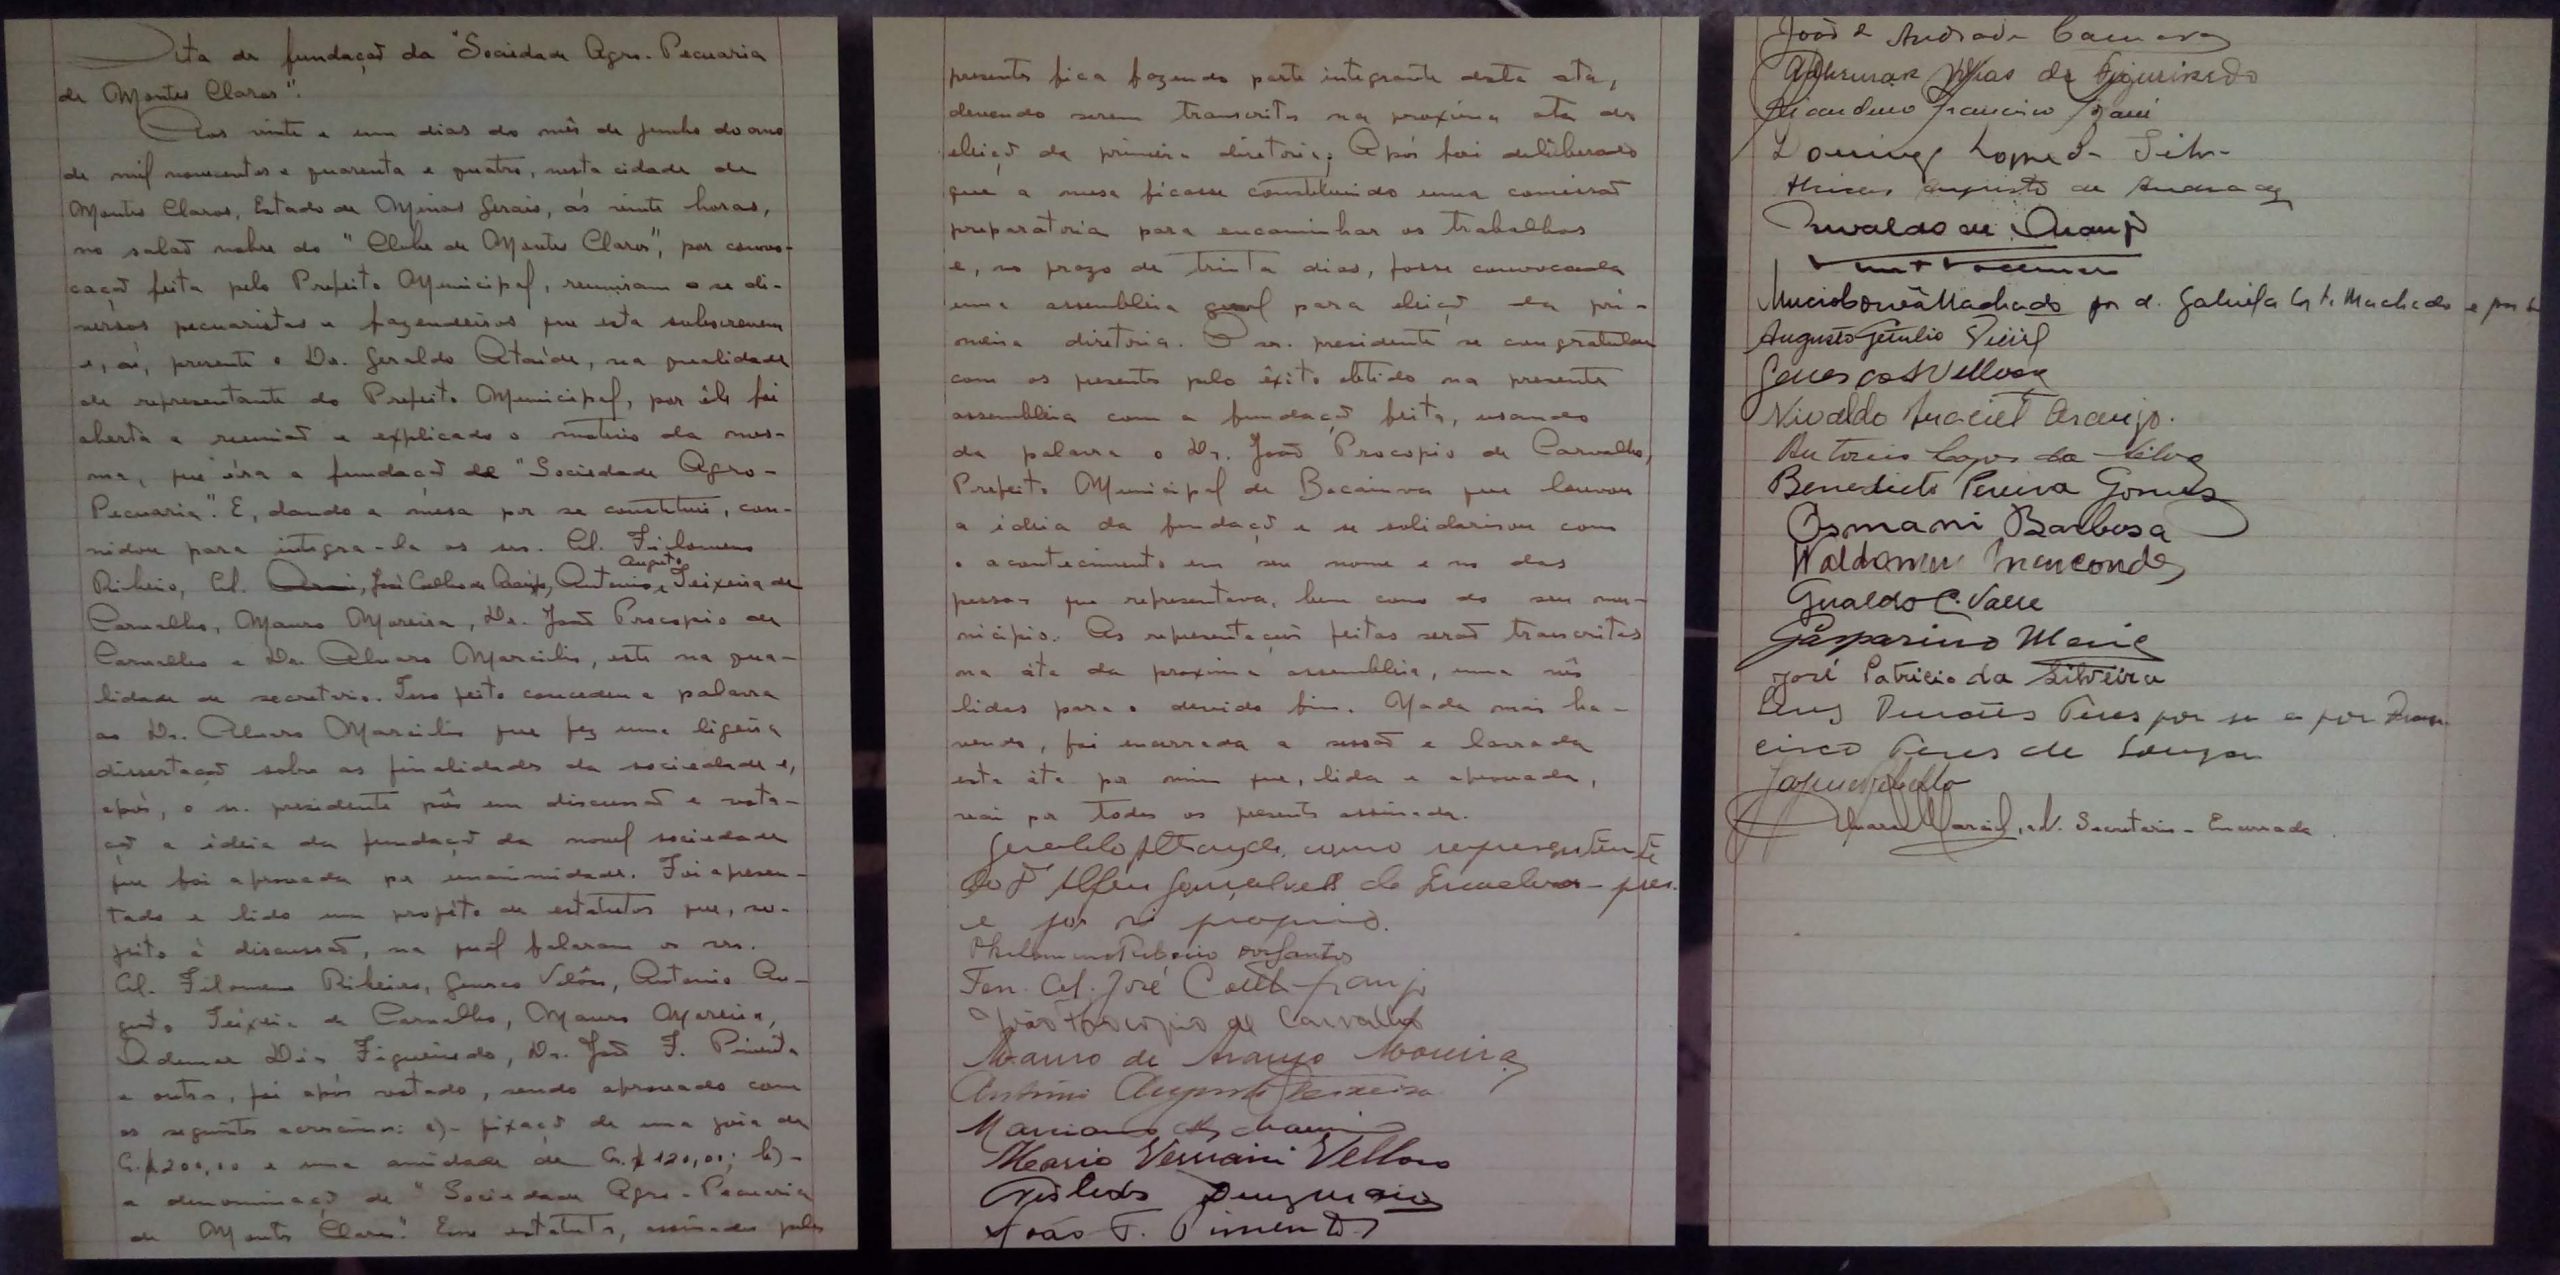 Ata de fundação da "Sociedade Agro-Pecuaria
de Montes Claros".
Aos vinte e um dias do mês de junho do ano
de mil novecentos e quarenta e quatro, nesta cidade de
Montes Claros, Estado de Minas Gerais, ás vinte horas,
no salão nobre do "Clube de Montes Claros", por convo-
cação feita pelo Prefeito Municipal, reuniram-se di-
versos pecuaristas e fazendeiros que esta subscrevem
e, aí, presente o Dr. Geraldo Ataíde, na qualidade
de representante do Prefeito Municipal, por êle foi
aberta a reunião e explicado o motivo da mes-
ma, que éra a fundação de "Sociedade Agro-
Pecuaria". E, dando a mesa por se constituir, con-
vidou para integra-la os srs. Cel. Filomeno
Ribeiro, Cel. José Coelho de Araújo, Antonio Augusto Teixeira de
Carvalho, Mauro Moreira, Dr. João Procopio de
Carvalho e Dr. Alvaro Marcilio, este na qua-
lidade de secretario. Isso feito concedeu a palavra
ao Dr. Alvaro Marcilio que fez uma ligeira
dissertação sobre as finalidades da sociedade e,
após, o sr. presidente pôs em discussão e vota-
ção a ideia da fundação da novel sociedade
que foi aprovada por unanimidade. Foi apresen-
tado e lido um projéto de estatutos que, su-
jeito à discussão, na qual falaram os srs.
Cel. Filomeno Ribeiro, Genesco Velôso, Antonio Au-
gusto Teixeira de Carvalho, Mauro Moreira,
Ademar Dias Figueiredo, Dr. João F. Pimenta
e outros, foi após votado, sendo aprovado com
os seguintes acrescimos: a)- fixação de uma joia de
Cr.$200,00 e uma anuidade de Cr.$120,00; b)-
a denominação de "Sociedade Agro-Pecuaria
de Montes Claros". Esses estatutos, assinados pelos
presentes fica fazendo parte integrante desta ata,
devendo serem transcritos na proxima ata de
eleição da primeira diretoria. Após foi deliberado
que a mesa ficasse constituindo uma comissão
preparatoria para encaminhar os trabalhos
e, no prazo de trinta dias, fosse convocada
uma assembléia geral para eleição da pri-
meira diretoria. O sr. presidente se congratulou
com os presentes pelo êxito obtido na presente
assembléia com a fundação feita, usando
da palavra o Dr. João Procopio de Carvalho,
Prefeito Municipal de Bocaiuva que louvou
a idéia da fundação e se solidarisou com
o acontecimento em seu nome e no das
pessoas que representava, bem como do seu mu-
nicipio. As representações feitas serão transcritas
na áta da proxima assembleia, uma vês
lidas para o devido fim. Nada mais ha-
vendo, foi encerrada a sessão e lavrada
esta áta por mim que, lida e aprovada,
vai por todos os presentes assinada.
Geraldo Athayde, como representante
do Dr Alfeu Gonçalves de Quadros - pres.
e por si proprio.
Philomeno Ribeiro dos Santos
Ten. Cel. José Coelho Araujo
João Procopio de Carvalho
Mauro de Araujo Moreira
Antonio Augusto Teixeira
Mario Versiani Velloso
João F. Pimenta
João de Andrade Camara
Adhemar Dias de Figueiredo
Domingos Lopes da Silva
Augusto de Andrade
Osvaldo de Araujo
por d. Gabriela C. Machado e por si
Augusto Getulio
Genesco Velloso
Nivaldo Maciel Araujo.
Antonio Lopes da Silva
Benedicto Pereira Gomes
Osmani Barbosa
Waldomiro Marcondes
Gualdo C. Valle
Gasparino Maia
José Patricio da Silveira
Luiz Peres por si e por Fran-
cisco Peres de Souza
Jayme Rebello
Alvaro Marcilio. Secretario - Encerrada.